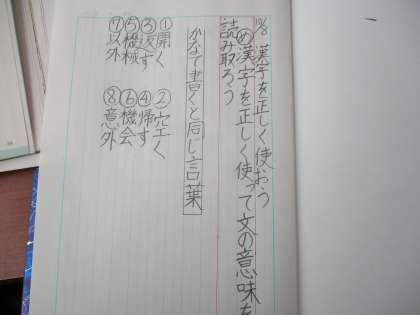 10/8 漢字を正しく使おう
め漢字を正しく使って文の意味を
読み取ろう
かなで書くと同じ言葉
①開く ②空く
③返す ④帰す
⑤機械 ⑥機会
⑦以外 ⑧意外